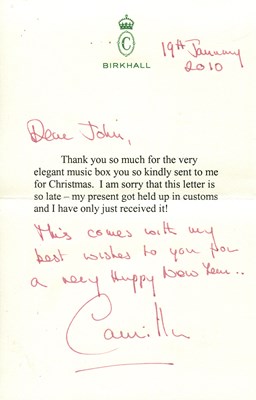 C
BIRKHALL
19th January
2010
Dear John,
Thank you so much for the very
elegant music box you so kindly sent to me
for Christmas. I am sorry that this letter is
so late – my present got held up in customs
and I have only just received it!
This comes with my
best wishes to you for
a very Happy New Year..
Camilla